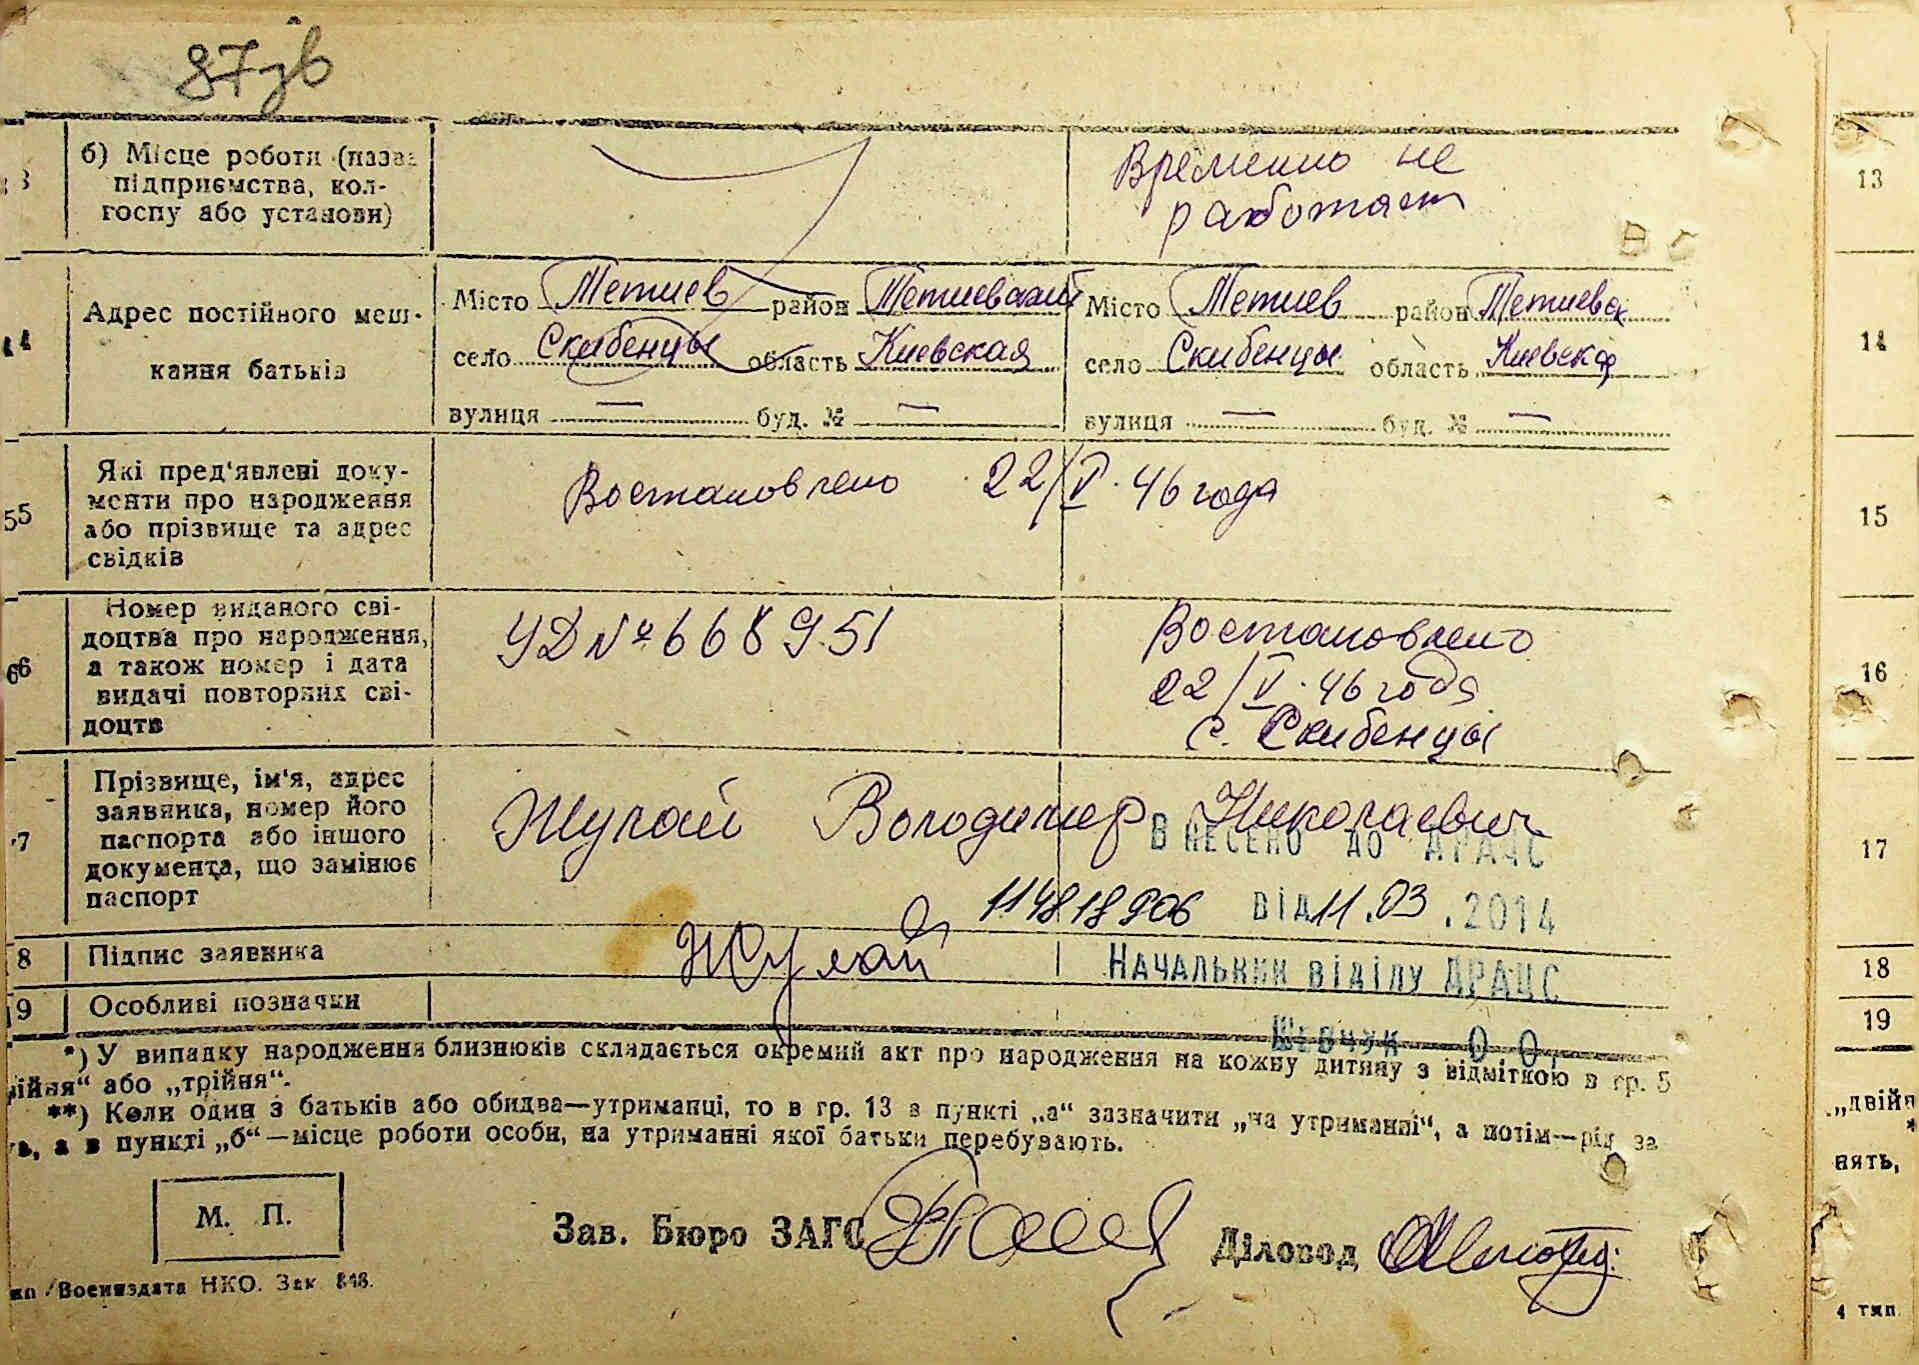 87зв
б) Місце роботи (назва
підприємства, кол-
госпу або установи)
Временно не
работает
13
Адрес постійного меш-
кання батьків
Місто Тетиев район Тетиевский
село Скибенцы область Киевская
вулиця — буд. № —
Місто Тетиев район Тетиевск
село Скибенцы область Киевская
вулиця — буд. № —
14
55
Які пред'явлені доку-
менти про народження
або прізвище та адрес
свідків
Востановлено 22/V. 46 года
15
66
Номер виданого сві-
доцтва про народження,
а також номер і дата
видачі повторних сві-
доцтв
УД № 668951
Востановлено
22/V. 46 года
с. Скибенцы
16
7
Прізвище, ім'я, адрес
заявника, номер його
паспорта або іншого
документа, що замінює
паспорт
Жулай Володимер Николаевич
ВНЕСЕНО ДО ДРАЦС
114818906 від 11.03.2014
17
8 Підпис заявника
Жулай
НАЧАЛЬНИК ВІДІЛУ ДРАЦС
18
9 Особливі позначки
Шевчук О О.
19
*) У випадку народження близнюків складається окремий акт про народження на кожну дитину з відміткою в гр. 5
ійня“ або „трійня“.
**) Коли один з батьків або обидва—утриманці, то в гр. 13 в пункті „а“ зазначити „на утриманні“, а потім—рід за
а в пункті „б“—місце роботи особи, на утриманні якої батьки перебувають.
„двійн
*
нять,
М. П.
Зав. Бюро ЗАГС
Діловод
/Воениздата НКО. Зак. 848.
4 тип.